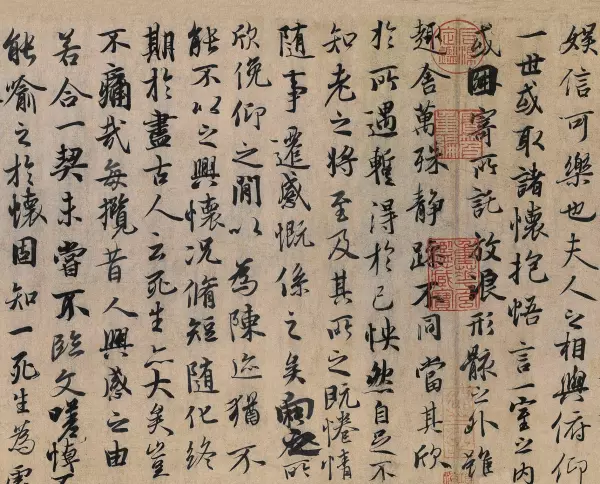 娛信可樂也夫人之相與俯仰
一世或取諸懷抱悟言一室之內
或因寄所託放浪形骸之外雖
趣舍萬殊静躁不同當其欣
於所遇蹔得於己怏然自足不
知老之將至及其所之既惓情
隨事遷感慨係之矣向之所
欣俛仰之閒以為陳迹猶不
能不以之興懷況脩短隨化終
期於盡古人云死生亦大矣豈
不痛哉每攬昔人興感之由
若合一契未嘗不臨文嗟悼不
能喻之於懷固知一死生為虛